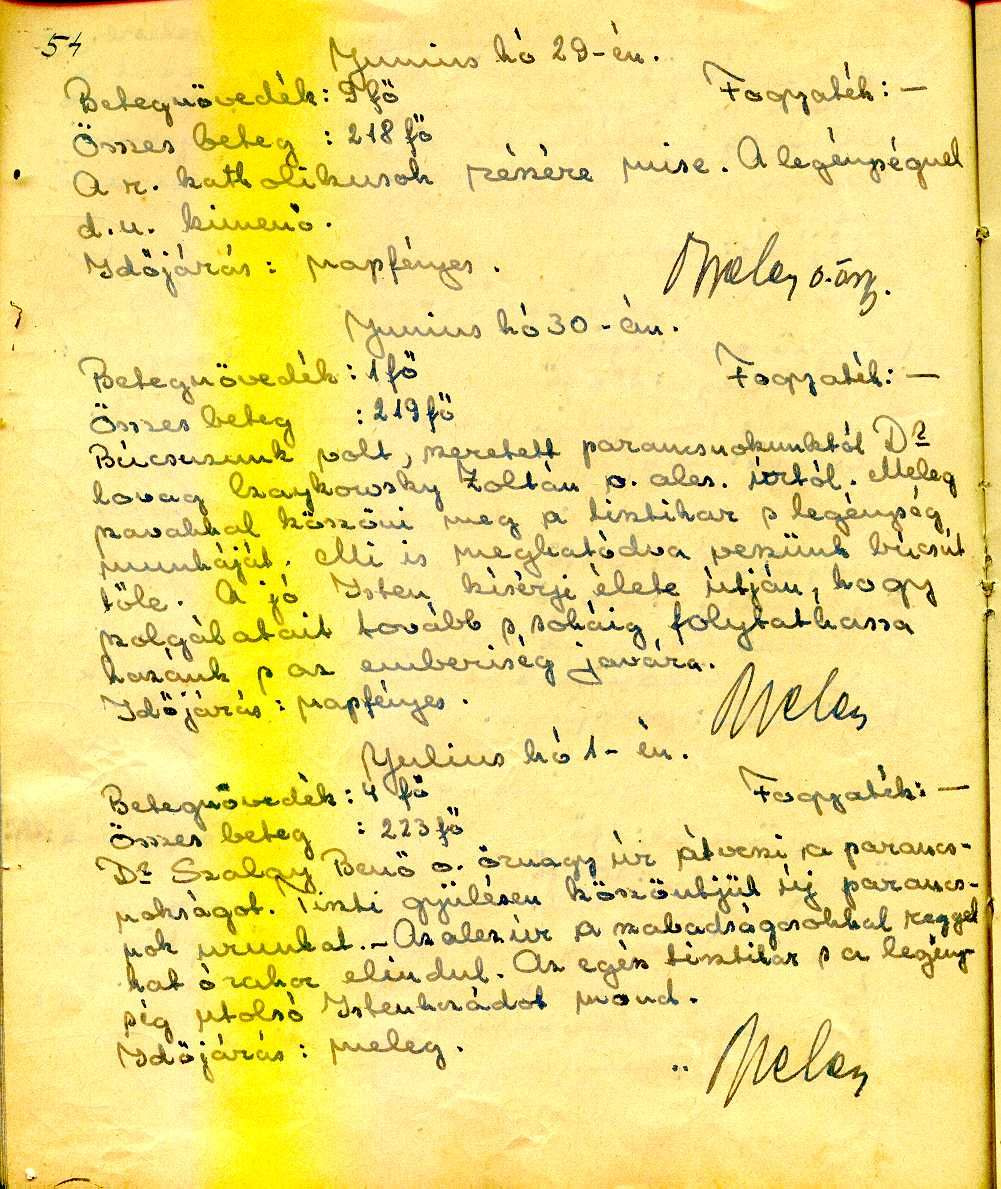 54
Junius hó 29-én.
Betegnövedék: 9 fő Fogyaték: —
Összes beteg : 218 fő
A r. katholikusok részére mise. A legénységnel
d.u. kimenő.
Időjárás: napfényes.
o.örgy.
Junius hó 30-án.
Betegnövedék: 1 fő Fogyaték: —
Összes beteg : 219 fő
Búcsusunk volt, szeretett parancsnokunktól Dr
lovag Czaykowsky Zoltán o. ales. úrtól. Meleg
szavakkal köszöni meg a tisztikar s legénység
munkáját. Mi is meghatódva veszünk búcsút
tőle. A jó Isten kísérje élete útján, hogy
szolgálatait tovább s sokáig folytathassa
hazánk s az emberiség javára.
Időjárás: napfényes.
Julius hó 1-én.
Betegnövedék: 4 fő Fogyaték: —
Összes beteg : 223 fő
Dr Szalay Benő o. őrnagy úr átveszi a parancs-
nokságot. Tiszti gyűlésen köszöntjük új parancs-
nok urunkat. - Az alez úr a szabadságosokkal reggel
hat órakor elindul. Az egész tisztikar s a legény-
ség utolsó Istenhozádot mond.
Időjárás: meleg.